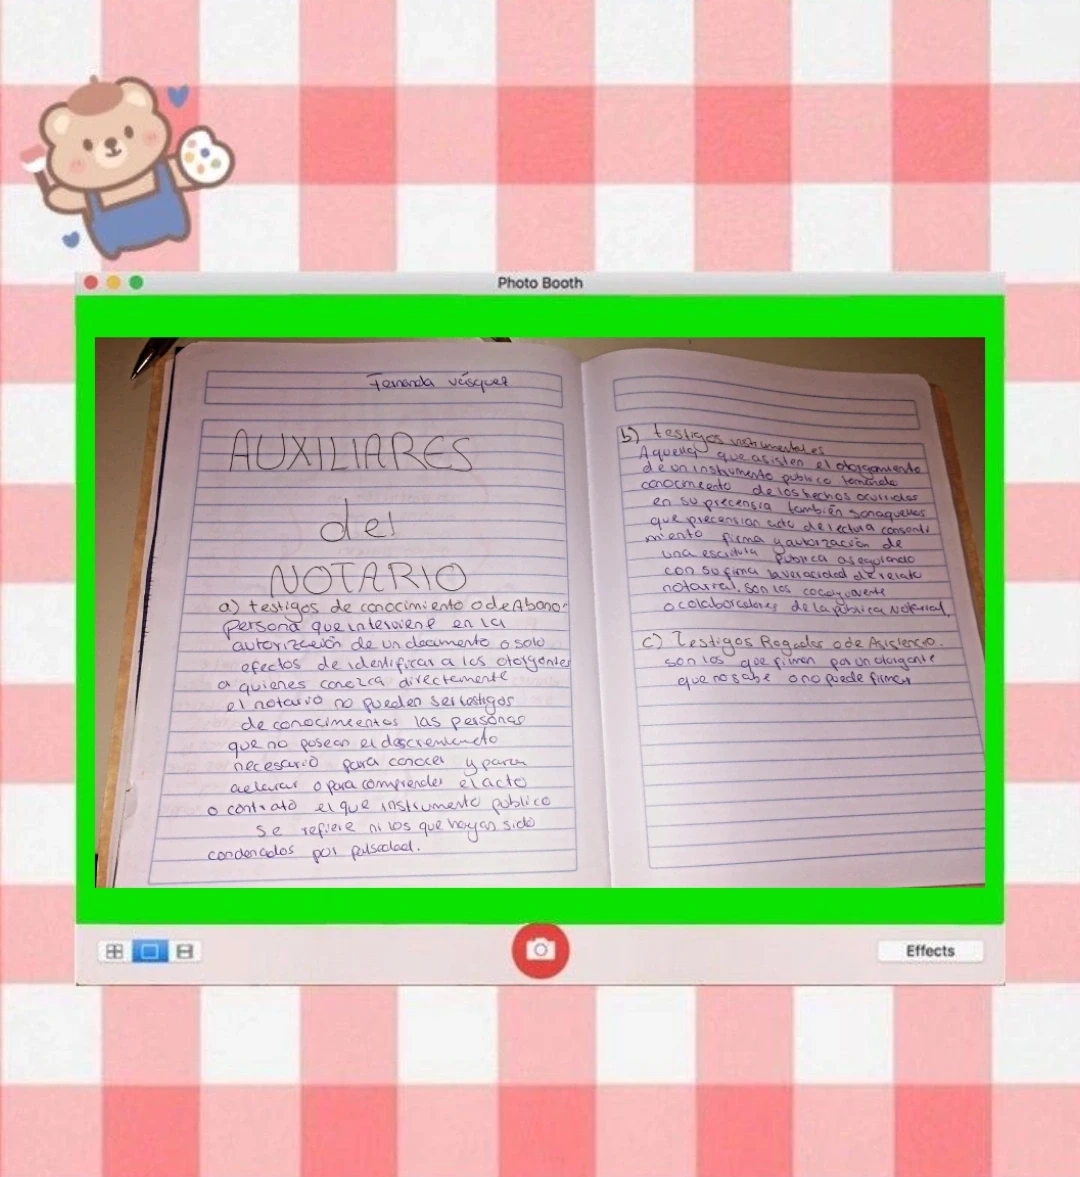 Photo Booth
Fernanda Vásquez
AUXILIARES
del
NOTARIO
a) testigos de conocimiento o de Abono-
persona que interviene en la
autorización de un documento o solo
efectos de identificar a los otorgantes
a quienes conozca directamente
el notario no pueden ser testigos
de conocimientos las personas
que no posean el
necesario para conocer y para
o para comprender el acto
o contrato el que instrumento publico
se refiere ni los que hayan sido
condenados por falsedad.
b) testigos instrumentales
Aquellos que asisten el otorgamiento
de un instrumento publico teniendo
conocimiento de los hechos ocurridos
en su precensia también son aquellos
que precension acto de lectura consenti
miento firma y autorización de
una escritura publica asegurando
con su firma la veracidad de relato
notarial. son los
o colaboradores de la publica Notarial
c) Testigos Rogados o de Asistencia.
son los que firman por un otorgante
que no sabe o no puede firmar
Effects